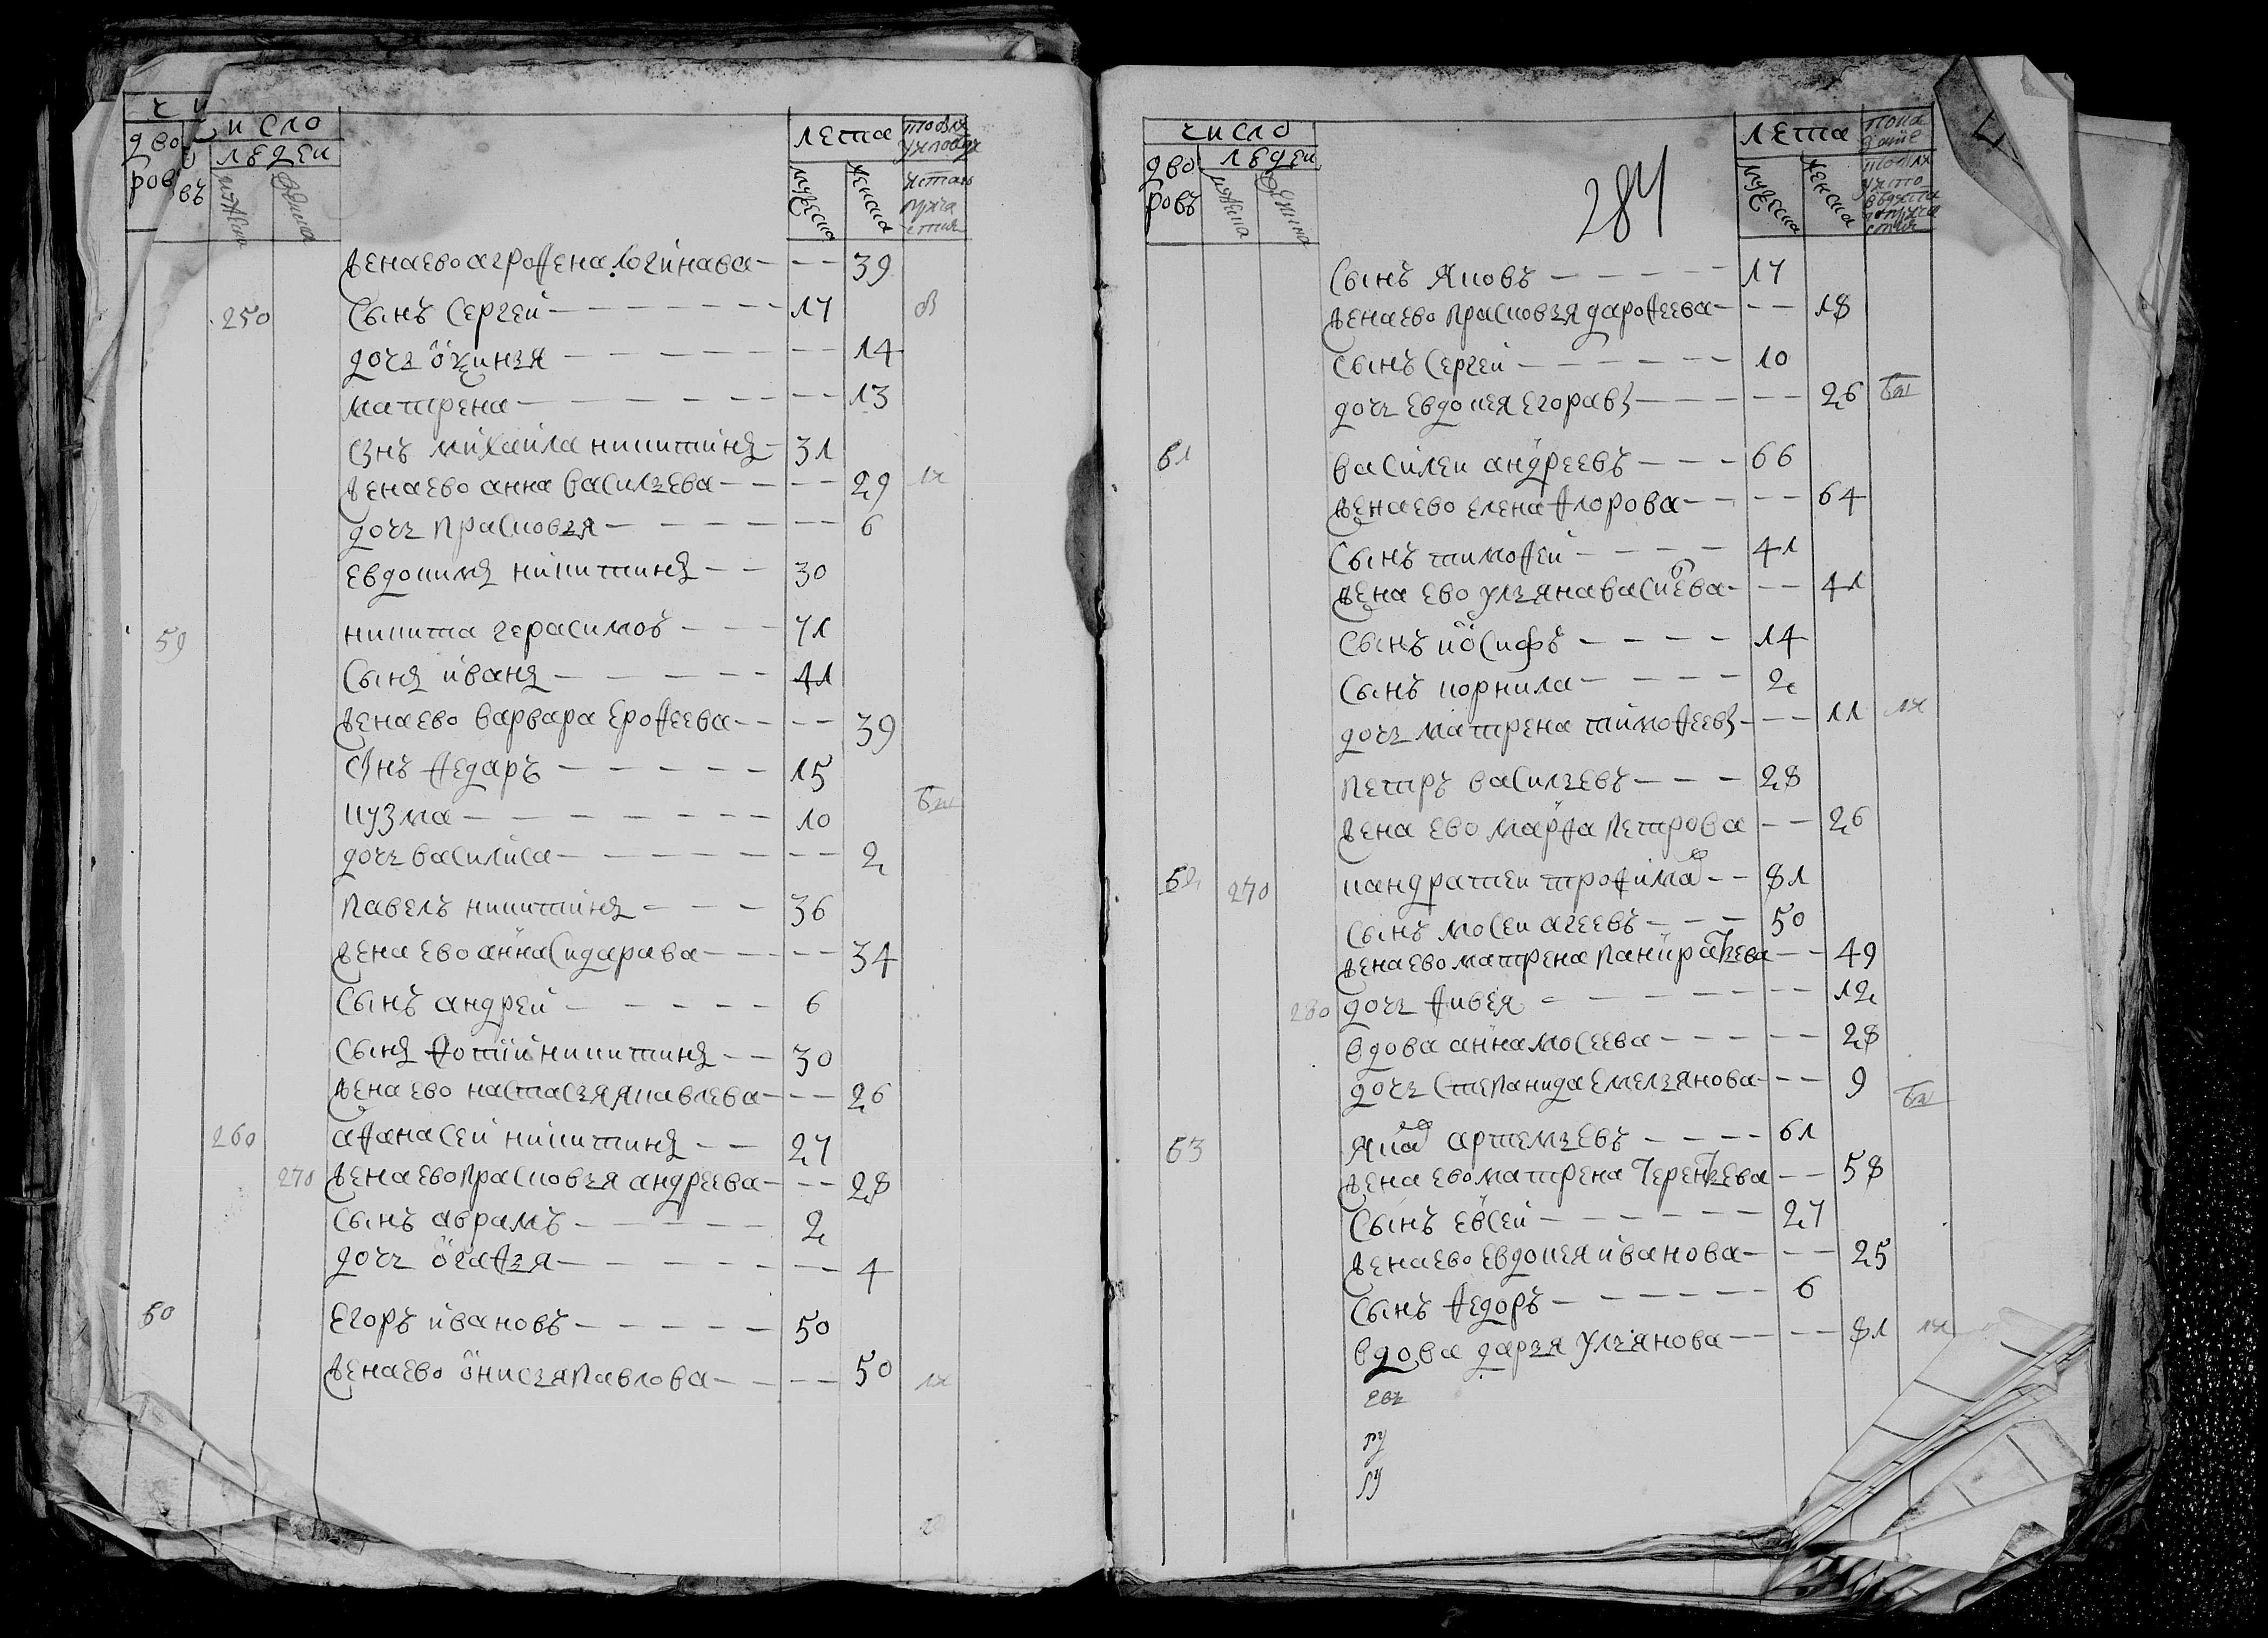 число
дворовъ людеи
мужеска женска
лета
мужеска женска
жена ево агрофена логинава - - 39
250 сынъ сергеи - 17
дочь окинья - 14
матрена - 13
снъ михаила никитинъ - 31
жена ево анна васильева - - 29
дочь прасковья - 6
евдокимъ никитинъ - - 30
59 никита герасимовъ - 71
сынъ иванъ - 41
жена ево варвара ерофеева - - 39
снъ федаръ - 15
кузма - 10
дочь василиса - 2
павелъ никитинъ - 36
жена ево анна сидарава - - 34
сынъ андреи - 6
сынъ фотии никитинъ - - 30
жена ево настасья яковлева - - 26
260 афанасеи никитинъ - - 27
270 жена ево прасковья андреева - - 28
сынъ аврамъ - 2
дочь огафья - 4
60 егоръ ивановъ - 50
жена ево онисья павлова - - 50
число
дворовъ людеи
мужеска женска
лета
мужеска женска
284
сынъ яковъ - 17
жена ево прасковья дарофеева - - 18
сынъ сергеи - 10
дочь евдокея егоравъ - 26
61 василеи андреевъ - 66
жена ево елена флорова - - 64
сынъ тимофеи - 41
жена ево ульяна васильева - - 41
сынъ иосифъ - 14
сынъ корнила - 2
дочь матрена тимофеевъ - - 11
петръ васильевъ - 28
жена ево марфа петрова - - 26
62 270 кандратеи трофимов - - 81
сынъ мосеи агеевъ - 50
жена ево матрена панкратьева - - 49
280 дочь фивея - 12
вдова анна мосеева - 28
дочь степанида емельянова - - 9
63 яков артемьевъ - 61
жена ево матрена терентьева - - 58
сынъ евсеи - 27
жена ево евдокея иванова - - 25
сынъ федоръ - 6
вдова дарья ульянова - - 81
евъ
ру
ру